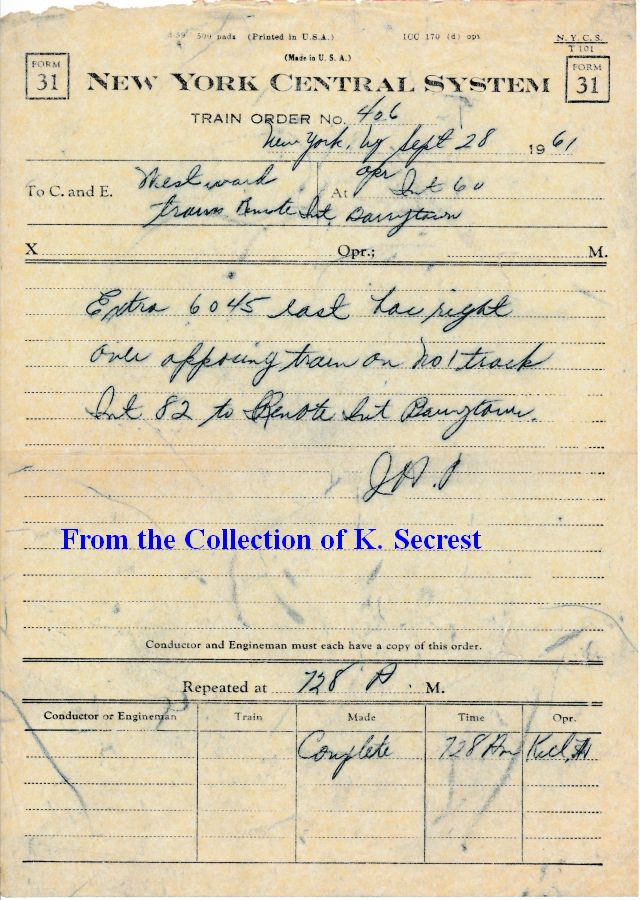 8-59 500 pads (Printed in U.S.A.) ICC 170 (d) opx
N. Y. C. S.
T 101
(Made in U. S. A.)
FORM 31 NEW YORK CENTRAL SYSTEM FORM 31
TRAIN ORDER No. 406
New York, Ny Sept 28 1961
To C. and E. Westward At opr Int 60
trains Remote Int. Barrytown
X Opr.; M.
Extra 6045 east has right
over opposing train on No 1 track
Int 82 to Remote Int Barrytown.
From the Collection of K. Secrest
Conductor and Engineman must each have a copy of this order.
Repeated at 728 A M.
Conductor or Engineman Train Made Time Opr.
Complete 728 Am